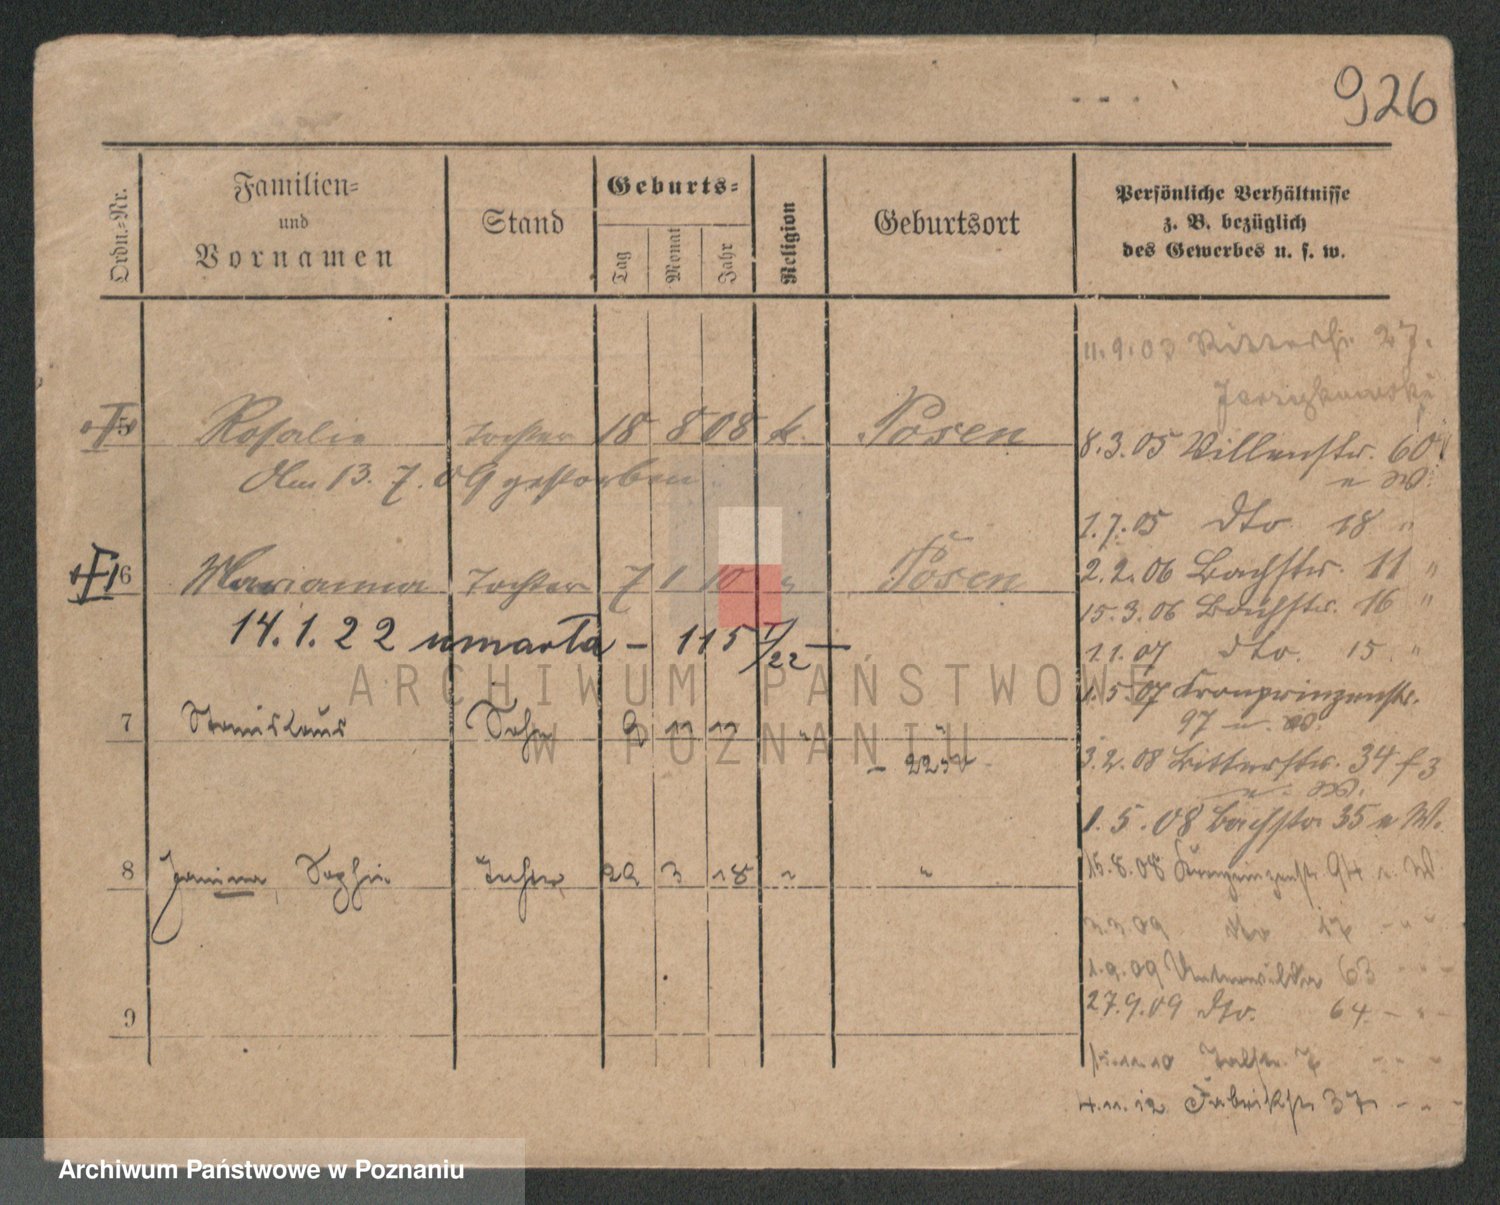 926
Ordn.-Nr.
Familien-
und
Vornamen
Stand
Geburts-
Tag
Monat
Jahr
Religion
Geburtsort
Persönliche Verhältnisse
z. B. bezüglich
des Gewerbes u. s. w.
11.9.03 Ritterstr. 27.
5 Rosalie Tochter 18 8 08 k. Posen
Am 13. 7. 09 gestorben
6 Marianna Tochter 7 1 10 " Posen
14. 1. 22 umarła – 115 I/22
7 Stanislaus Sohn 9 11 11 " "
8 Janina, Sophie Tochter 22 3 18 " "
9
8.3.05 Villenstr. 60
1.7.05 dto. 18 "
2.2.06 Bachstr. 11 "
15.3.06 Bachstr. 16 "
1.1.07 dto. 15 "
1.5.07 Kronprinzenstr.
97
3.2.08 Ritterstr. 34
1.5.08 Bachstr. 35 b W.
15.8.08 Kronprinzenstr. 94 b. W
dto 17 - " "
1.9.09 Unterwilda 63 - " -
27.9.09 dto. 64 - " -
15.11.10 Talstr. 7 - " -
4.11.12 Fabrikstr 37 - " -
ARCHIWUM PAŃSTWOWE
W POZNANIU
Archiwum Państwowe w Poznaniu